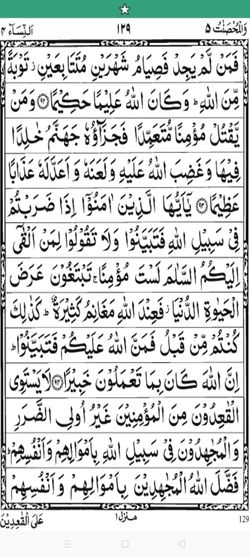 وَالْمُحْصَنٰتُ ۵ ۱۲۹ اَلنِّسَآء ۴
فَمَنْ لَّمْ يَجِدْ فَصِيَامُ شَهْرَيْنِ مُتَتَابِعَيْنِ ز تَوْبَةً
مِّنَ اللّٰهِ ؕ وَ كَانَ اللّٰهُ عَلِيْمًا حَكِيْمًا ﴿۹۲﴾ وَ مَنْ
يَّقْتُلْ مُؤْمِنًا مُّتَعَمِّدًا فَجَزَآؤُهٗ جَهَنَّمُ خٰلِدًا
فِيْهَا وَ غَضِبَ اللّٰهُ عَلَيْهِ وَ لَعَنَهٗ وَ اَعَدَّ لَهٗ عَذَابًا
عَظِيْمًا ﴿۹۳﴾ يٰۤاَيُّهَا الَّذِيْنَ اٰمَنُوْۤا اِذَا ضَرَبْتُمْ
فِيْ سَبِيْلِ اللّٰهِ فَتَبَيَّنُوْا وَ لَا تَقُوْلُوْا لِمَنْ اَلْقٰۤى
اِلَيْكُمُ السَّلٰمَ لَسْتَ مُؤْمِنًا ۚ تَبْتَغُوْنَ عَرَضَ
الْحَيٰوةِ الدُّنْيَا ز فَعِنْدَ اللّٰهِ مَغَانِمُ كَثِيْرَةٌ ؕ كَذٰلِكَ
كُنْتُمْ مِّنْ قَبْلُ فَمَنَّ اللّٰهُ عَلَيْكُمْ فَتَبَيَّنُوْا ؕ
اِنَّ اللّٰهَ كَانَ بِمَا تَعْمَلُوْنَ خَبِيْرًا ﴿۹۴﴾ لَا يَسْتَوِى
الْقٰعِدُوْنَ مِنَ الْمُؤْمِنِيْنَ غَيْرُ اُولِى الضَّرَرِ
وَ الْمُجٰهِدُوْنَ فِيْ سَبِيْلِ اللّٰهِ بِاَمْوَالِهِمْ وَ اَنْفُسِهِمْ ؕ
فَضَّلَ اللّٰهُ الْمُجٰهِدِيْنَ بِاَمْوَالِهِمْ وَ اَنْفُسِهِمْ
عَلَى الْقٰعِدِيْنَ منزل ۱ 129